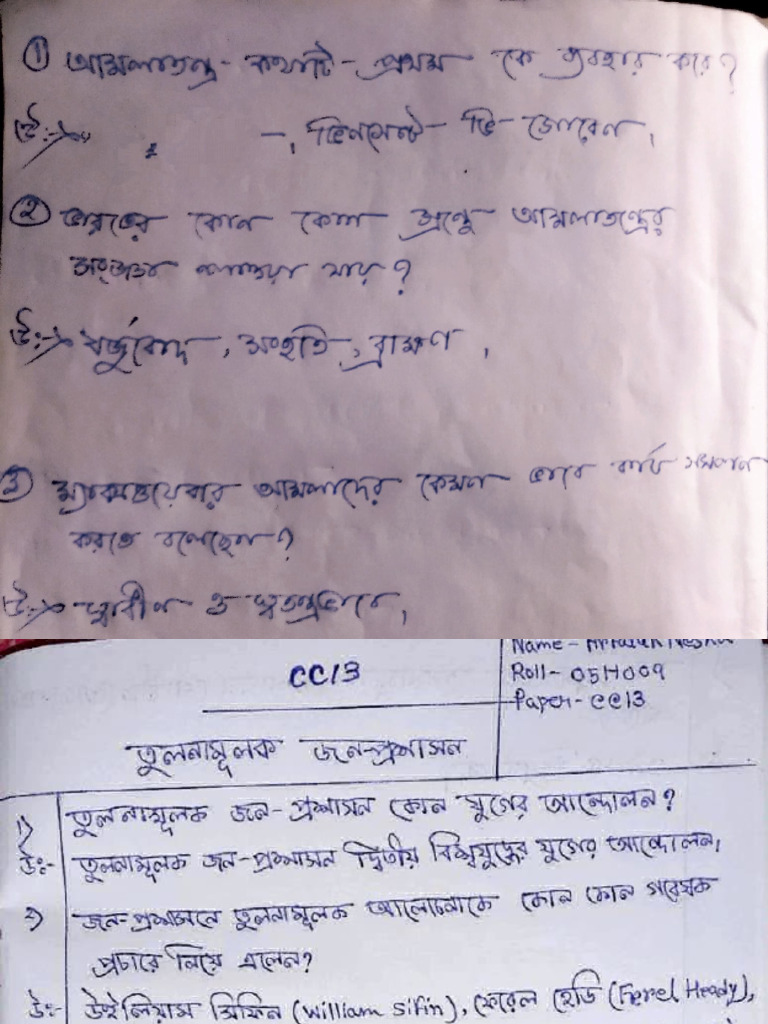 ① আমলাতন্ত্র - কথাটি - প্রথম কে ব্যবহার করে?
উঃ→ -, ভিনসেন্ট - ডি - গোরনে,
② ভারতের কোন কোন গ্রন্থে আমলাতন্ত্রের
পাওয়া যায়?
উঃ→ যর্জুবেদ, সংহতি, ব্রাহ্মণ,
3) ম্যাক্সওয়েবার আমলাদের কেমন ভাবে কার্য সম্পাদন
করতে বলেছেন?
উঃ→ স্বাধীন ও স্বতন্ত্রভাবে,
Name -
CC13
Roll- 05H009
Paper- CC13
তুলনামূলক জন-প্রশাসন
1) তুলনামূলক জন-প্রশাসন কোন যুগের আন্দোলন?
উঃ- তুলনামূলক জন-প্রশাসন দ্বিতীয় বিশ্বযুদ্ধের যুগের আন্দোলন,
2) জন-প্রশাসনে তুলনামূলক আলোচনাকে কোন কোন গবেষক
প্রচারে নিয়ে এলেন?
উঃ- উইলিয়াম সিফিন (William Sifin), ফেরেল হেডি (Ferel Heady),